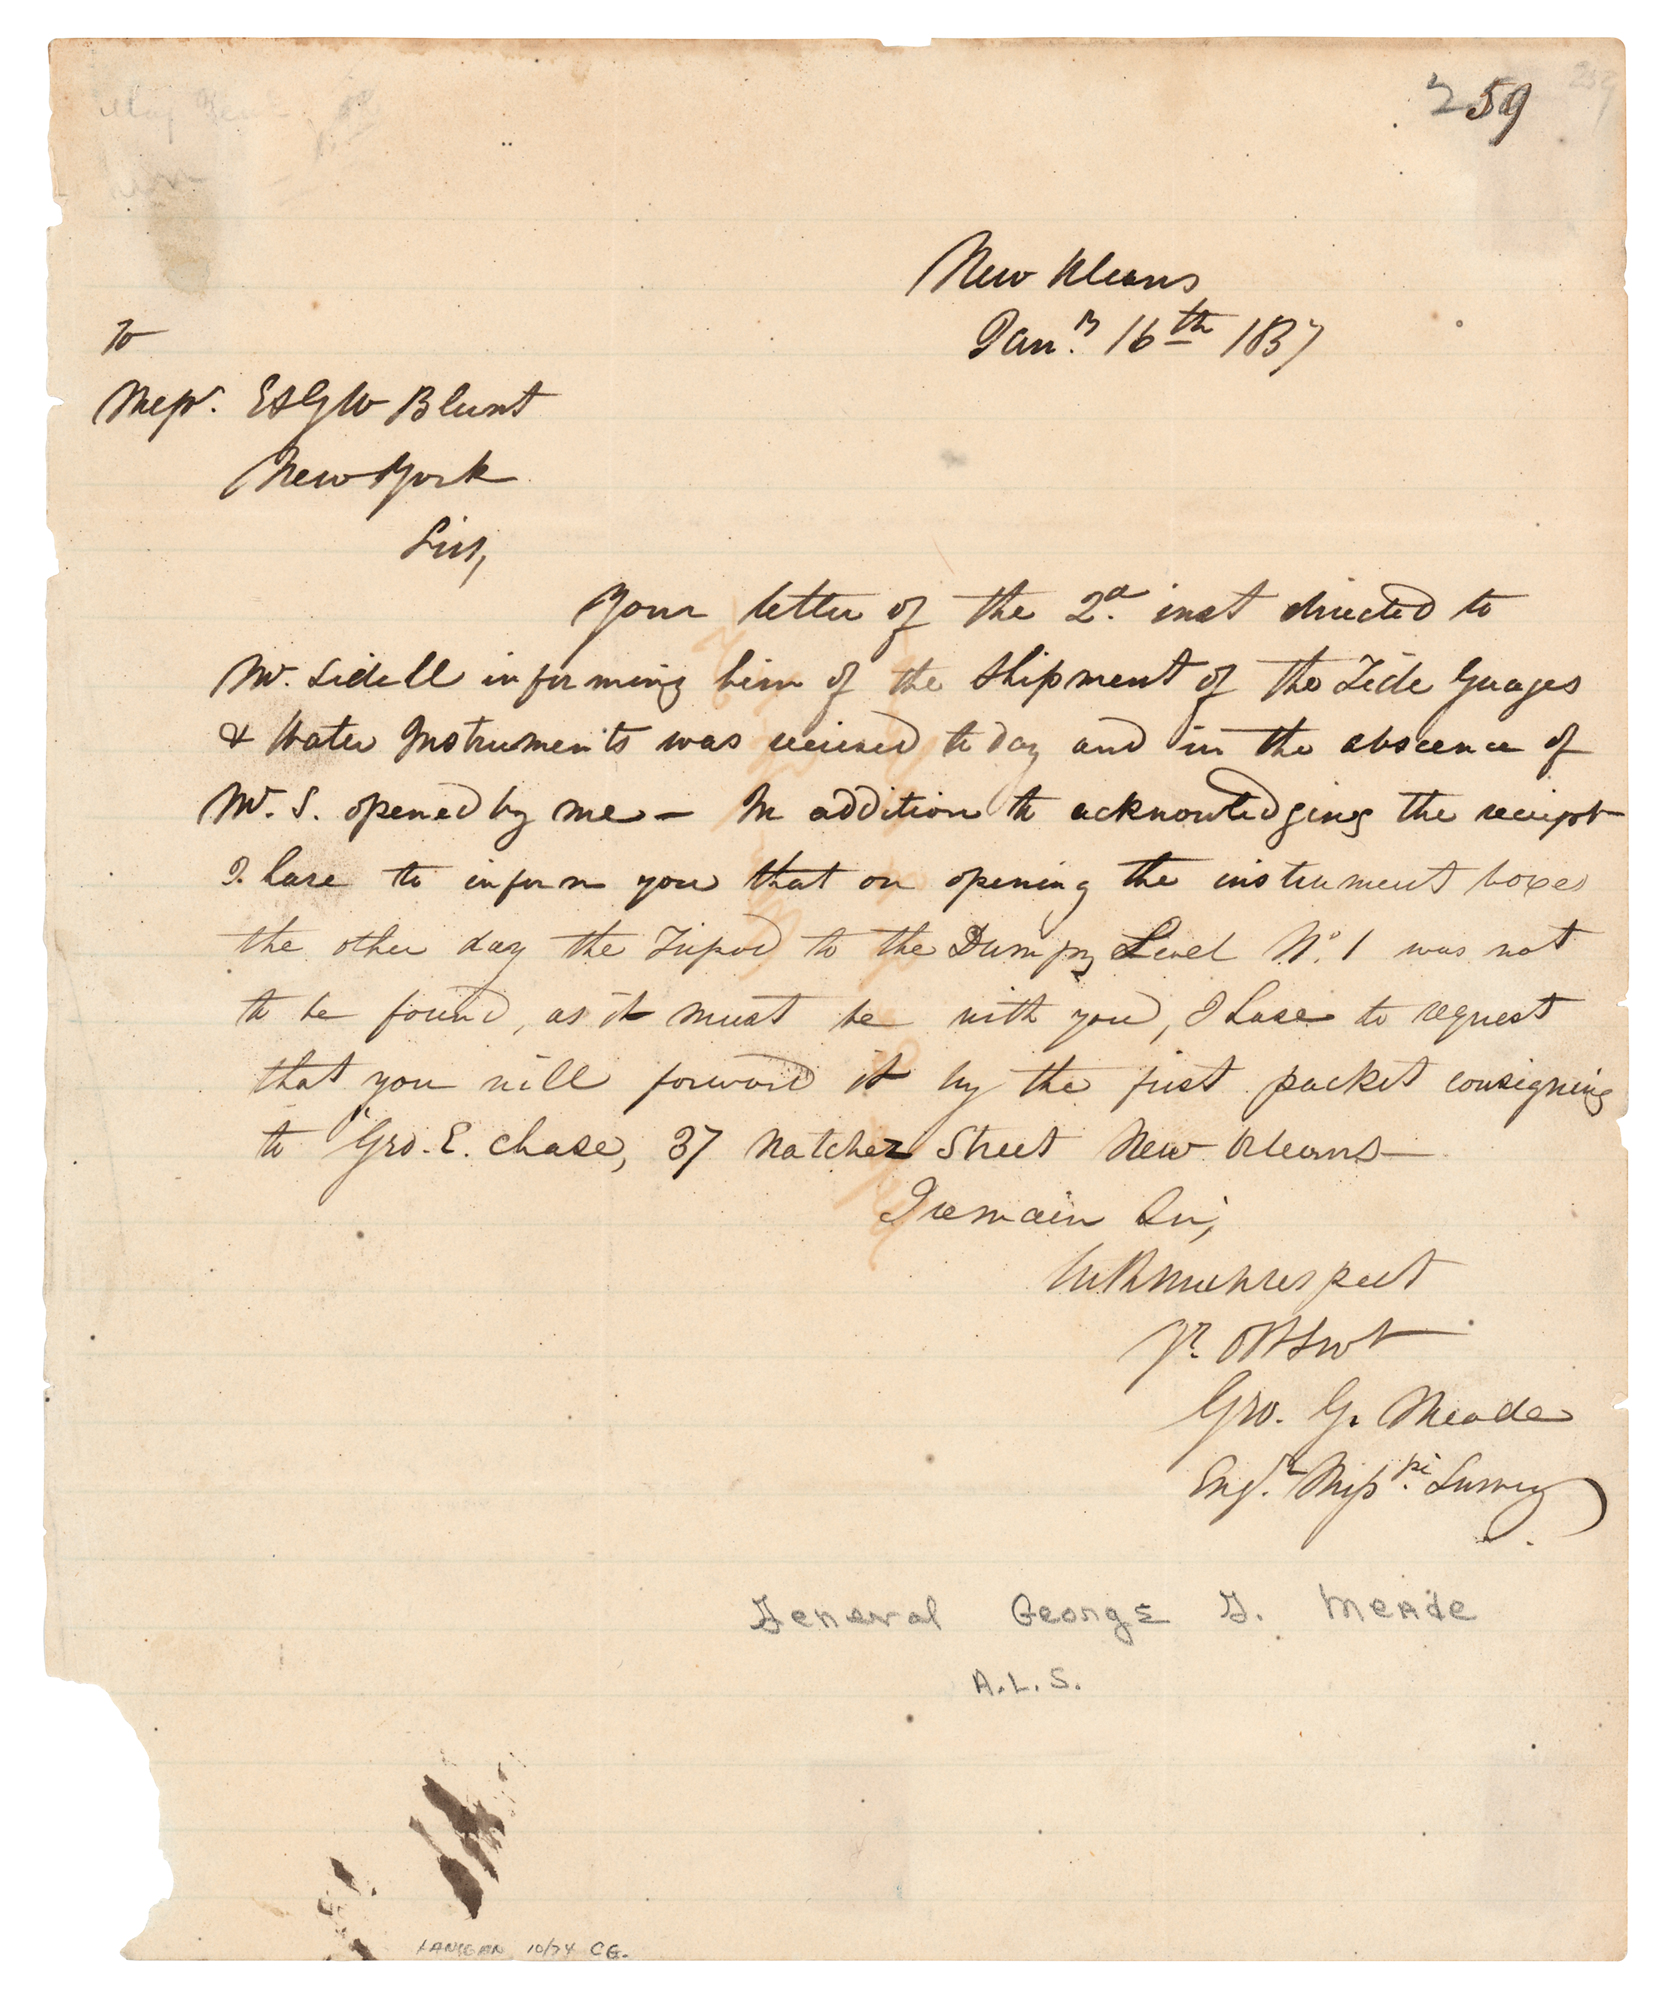 259
New Orleans
Jany. 16th 1837
To
Messrs. E & G W Blunt
New York
Sirs,
Your letter of the 2d. inst directed to
Mr. Sidell informing him of the shipment of the Tide Guages
& Water Instruments was received to day and in the abscence of
Mr. S. opened by me — In addition to acknowledging the receipt
I have to inform you that on opening the instrument boxes
the other day the Tripod to the Dumpy Level No. 1 was not
to be found, as it must be with you, I have to request
that you will forward it by the first packet consigning
to "Geo. E. Chase, 37 Natchez Street New Orleans —
I remain Sir,
With much respect
Yr. Obt Svt
Geo. G. Meade
Engr. Missppi. Survey
General George G. Meade
A.L.S.
10/74 CG.